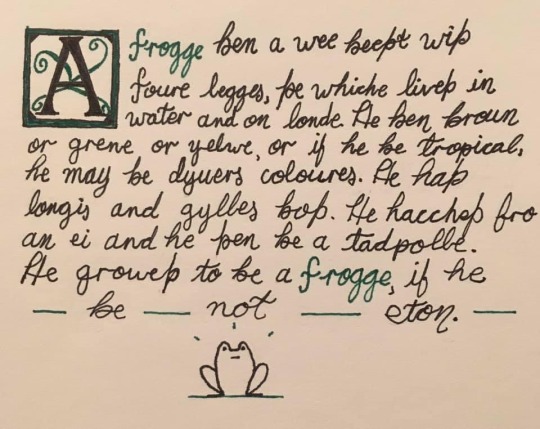 A frogge ben a wee beeþt wiþ
foure legges, þe whiche liveþ in
water and on londe. He ben broun
or grene or yelwe, or if he be tropical,
he may be dyuers coloures. He haþ
longis and gylles boþ. He haccheþ fro
an ei and he þen be a tadpolle.
He groweþ to be a frogge, if he
— be — not — eton. —